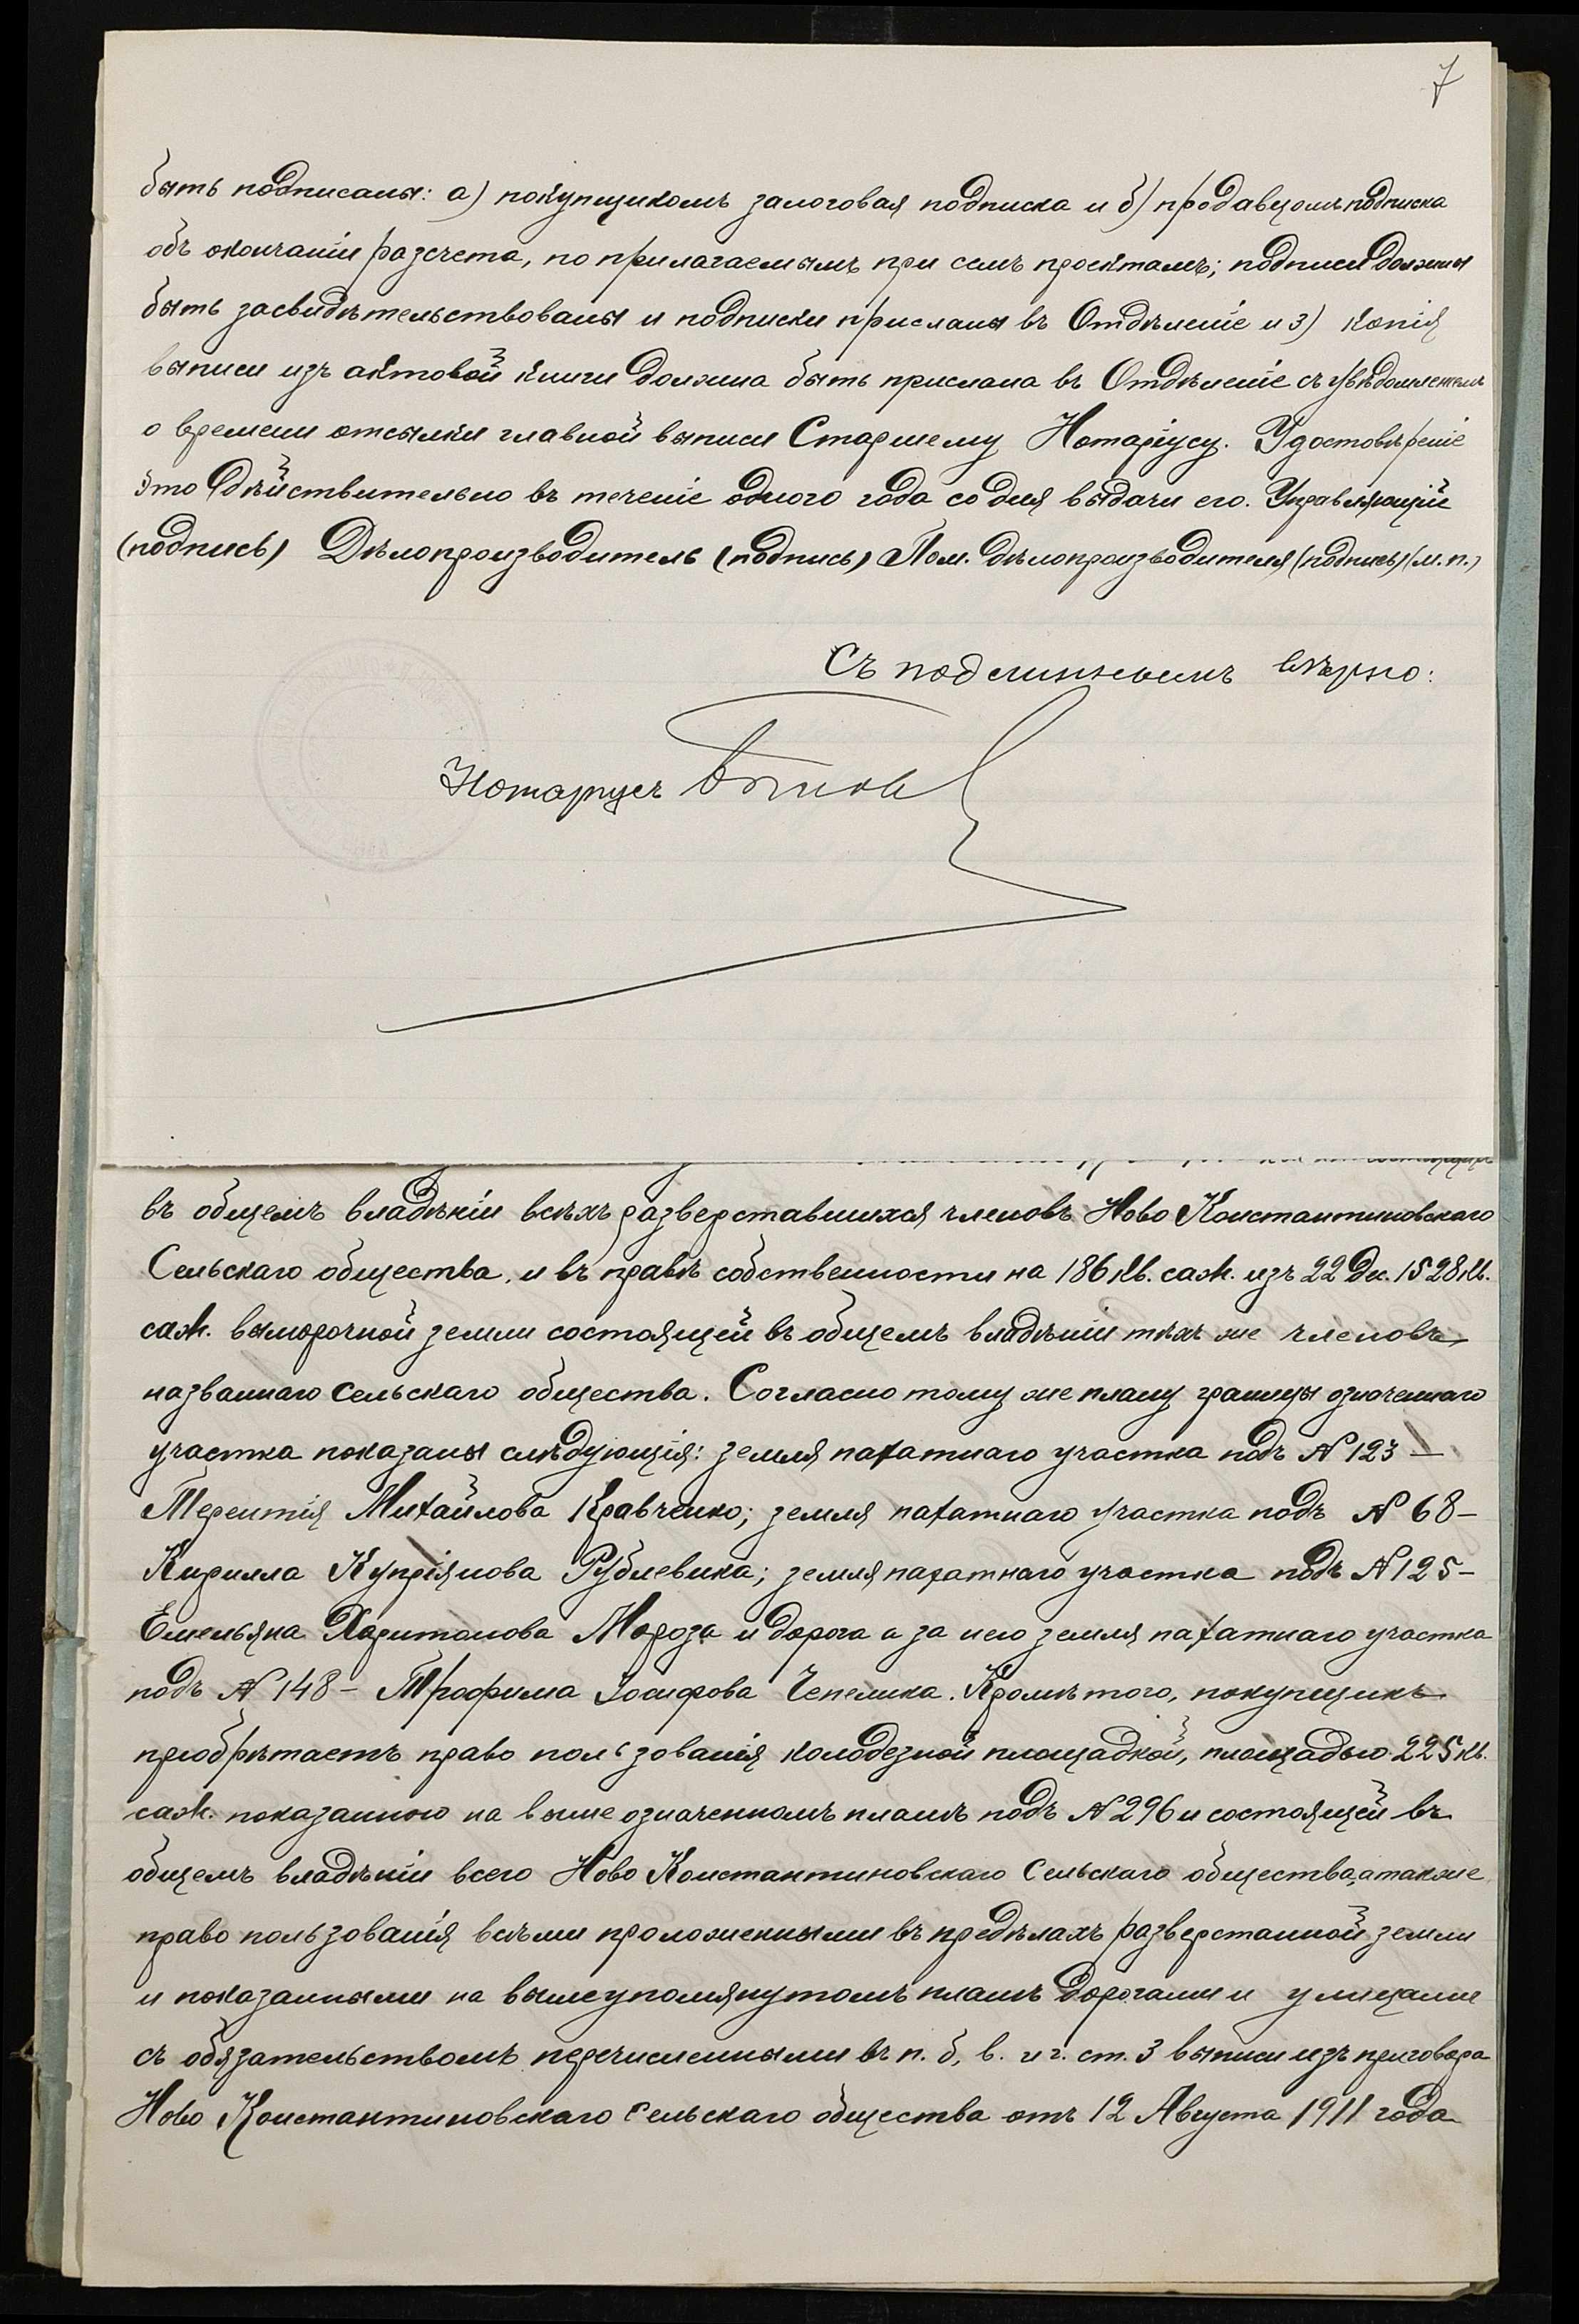 7
быть подписаны: а) покупщикомъ залоговая подписка и б) продавцомъ подписка
объ окончаніи разсчета, по прилагаемымъ при семъ проектамъ; подписи должны
быть засвидѣтельствованы и подписки присланы въ Отдѣленіе и 3) копія
выписи изъ актовой книги должна быть прислана въ Отдѣленіе съ увѣдомленіемъ
о времени отсылки главной выписи Старшему Нотаріусу. Удостовѣреніе
это дѣйствительно въ теченіе одного года со дня выдачи его. Управляющій
(подпись) Дѣлопроизводитель (подпись) Пом. дѣлопроизводителя (подпись) (м.п.)
Съ подлиннымъ вѣрно:
Нотаріусъ
въ общемъ владѣніи всѣхъ разверставшихся членовъ Ново Константиновскаго
Сельскаго общества, и въ правѣ собственности на 186 кв. саж. изъ 22 дес. 1528 кв.
саж. выморочной земли состоящей въ общемъ владѣніи тѣхъ же членовъ
названнаго сельскаго общества. Согласно тому же плану границы означеннаго
участка показаны слѣдующія: земля пахатнаго участка подъ № 123 —
Терентія Михайлова Кравченко; земля пахатнаго участка подъ № 68 —
Кирилла Купріянова Рублевика; земля пахатнаго участка подъ № 125 —
Емельяна Харитонова Мороза и дорога а за нею земля пахатнаго участка
подъ № 148 — Трофима Іосифова Чепелика. Кромѣ того, покупщикъ
пріобрѣтаетъ право пользованія колодезной площадкой, площадью 225 кв.
саж. показанною на выше означенномъ планѣ подъ № 296 и состоящей въ
общемъ владѣніи всего Ново Константиновскаго Сельскаго общества, а также
право пользованія всѣми проложенными въ предѣлахъ разверстанной земли
и показанными на вышеупомянутомъ планѣ дорогами и улицами
съ обязательствомъ перечисленными въ п. б, в. и г. ст. 3 выписи изъ приговора
Ново Константиновскаго Сельскаго общества отъ 12 Августа 1911 года